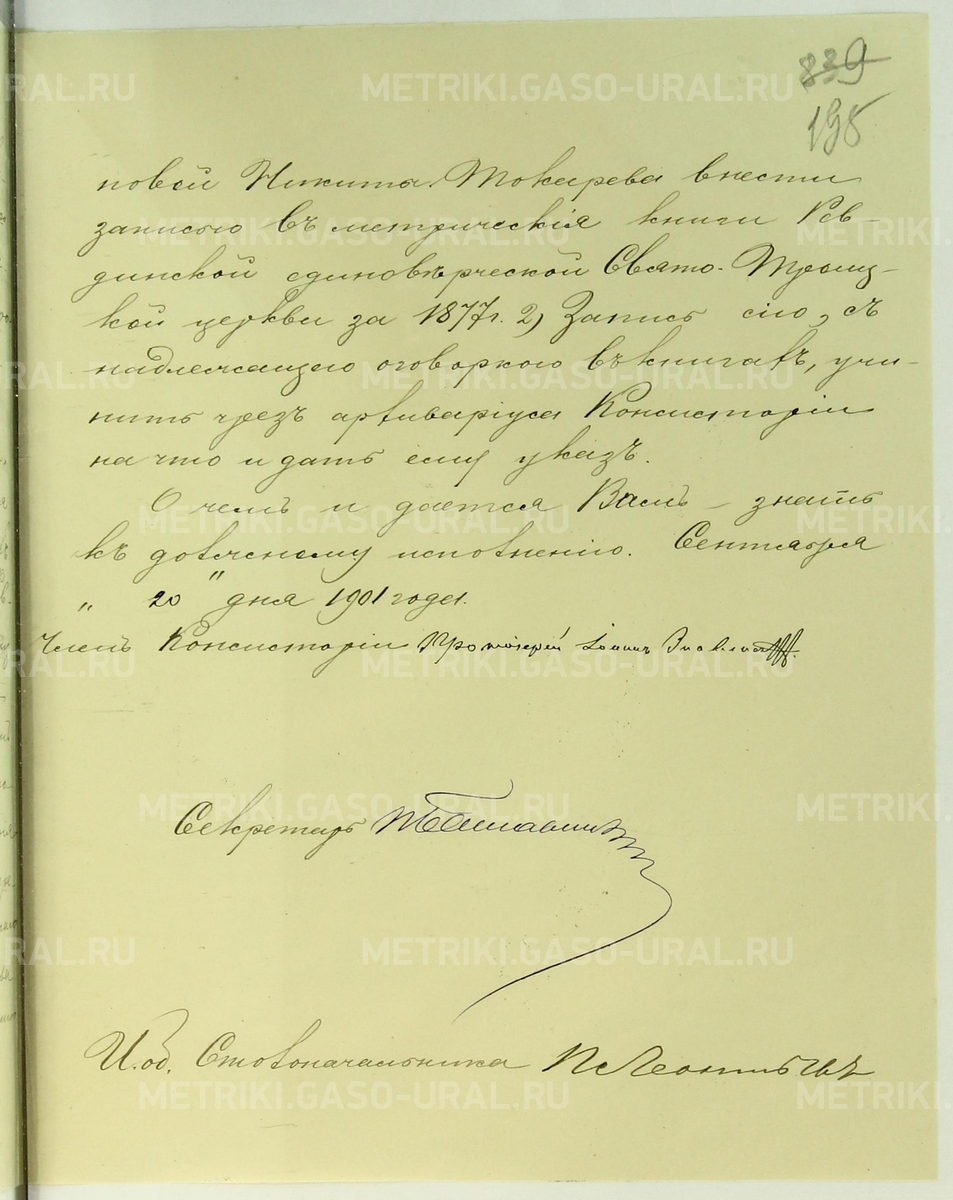 839
195
новой Никита Токарева внести
записью въ метрическія книги Рев-
динской единовѣрческой Свято-Троиц-
кой церкви за 1877 г. 2) Запись сію, съ
надлежащею оговоркою въ книгахъ, учи-
нить чрез архиваріуса Консисторіи
на что и дать ему указъ.
О чемъ и дается Вамъ – знать
къ должному исполненію. Сентября
„ 20 " дня 1901 года.
Членъ Консисторіи Протоіерей Іоаннъ
Секретарь
И. об. Столоначальника П Леонтьевъ
METRIKI.GASO-URAL.RU